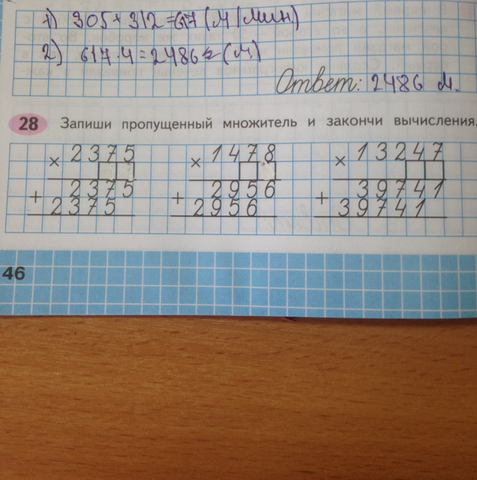 1) 305 + 312 = 617 (м/мин)
2) 617 · 4 = 2486 (м)
Ответ: 2486 м.
28 Запиши пропущенный множитель и закончи вычисления.
× 2375 × 1478 × 13247
+ 2375 + 2956 + 39741
2375 2956 39741
46